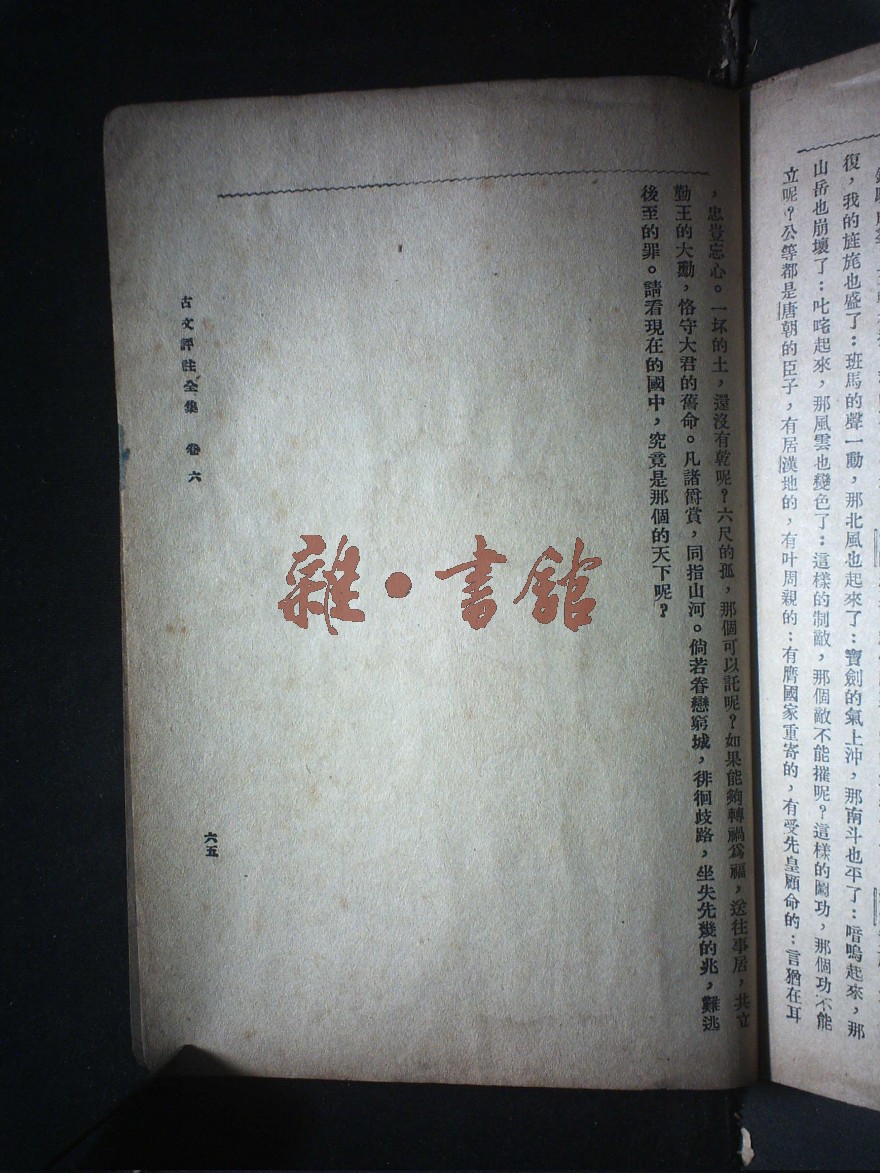 復，我的旌旄也盛了：班馬的聲一動，那北風也起來了：寶劍的氣上沖，那南斗也平了：喑嗚起來，那
山岳也崩壞了：叱咤起來，那風雲也變色了：這樣的制敵，那個敵不能摧呢？這樣的圖功，那個功不能
立呢？公等都是唐朝的臣子，有居漢地的，有叶周親的：有膺國家重寄的，有受先皇顧命的：言猶在耳
，忠豈忘心。一坏的土，還沒有乾呢？六尺的孤，那個可以託呢？如果能夠轉禍爲福，送往事居，共立
勤王的大勳，恪守大君的舊命。凡諸爵賞，同指山河。倘若眷戀窮城，徘徊歧路，坐失先幾的兆，難逃
後至的罪。請看現在的國中，究竟是那個的天下呢？
古文評註全集 卷六
六五
雜·書館